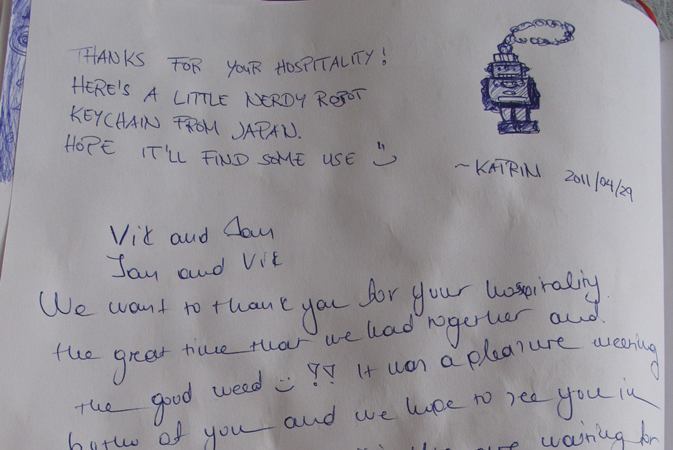 THANKS FOR YOUR HOSPITALITY!
HERE'S A LITTLE NERDY ROBOT
KEYCHAIN FROM JAPAN.
HOPE IT'LL FIND SOME USE :)
~KATRIN 2011/04/29
Vit and Jan
Jan and Vit
We want to thank you for your hospitality.
the great time that we had together and.
the good weed :) !! It was a pleasure meeting
of you and we hope to see you in
waiting for